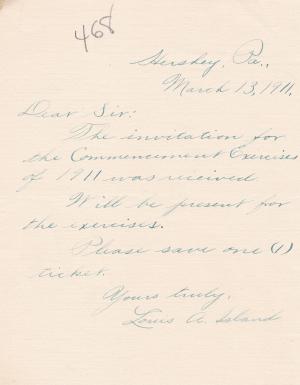 468
Hershey, Pa.,
March 13, 1911.
Dear Sir:
The invitation for
the Commencement Exercises
of 1911 was received
Will be present for
the exercises.
Please save one (1)
ticket.
Yours truly,
Louis A. Island